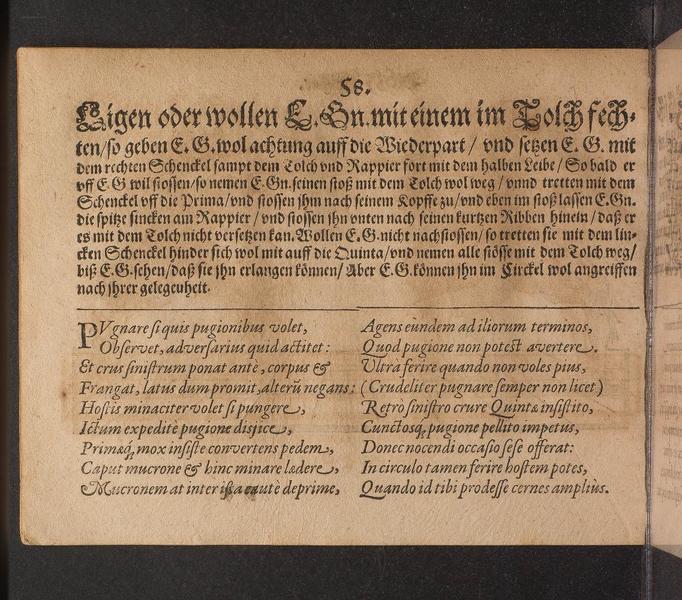 58.
Ligen oder wollen E. Gn. mit einem im Tolch fech-
ten/so geben E. G. wol achtung auff die Wiederpart / vnd setzen E. G. mit
dem rechten Schenckel sampt dem Tolch vnd Rappier fort mit dem halben Leibe / So bald er
vff E. G wil stossen/so nemen E. Gn. seinen stoß mit dem Tolch wol weg / vnnd tretten mit dem
Schenckel vff die Prima/vnd stossen jhm nach seinem Kopffe zu/vnd eben im stoß lassen E. Gn.
die spitze sincken am Rappier / vnd stossen jhn vnten nach seinen kurtzen Ribben hinein / daß er
es mit dem Tolch nicht versetzen kan. Wollen E. G. nicht nachstossen/ so tretten sie mit dem lin-
cken Schenckel hinder sich wol mit auff die Quinta/vnd nemen alle stösse mit dem Tolch weg/
biß E. G. sehen/daß sie jhn erlangen können/ Aber E. G. können jhn im Circkel wol angreiffen
nach jhrer gelegenheit.
PVgnare si quis pugionibus volet,
Observet, adversarius quid actitet:
Et crus sinistrum ponat antè, corpus &
Frangat, latus dum promit, alterũ negans:
Hostis minaciter volet si pungere,
Ictum expeditè pugione disjice,
Primæq́; mox insiste convertens pedem,
Caput mucrone & hinc minare lædere,
Mucronem at inter ista cautè deprime,
Agens eundem ad iliorum terminos,
Quod pugione non potest avertere.
Ultra ferire quando non voles pius,
(Crudeliter pugnare semper non licet)
Retrò sinistro crure Quintæ insistito,
Cunctosq́; pugione pellito impetus,
Donec nocendi occasio sese offerat:
In circulo tamen ferire hostem potes,
Quando id tibi prodesse cernes ampliùs.